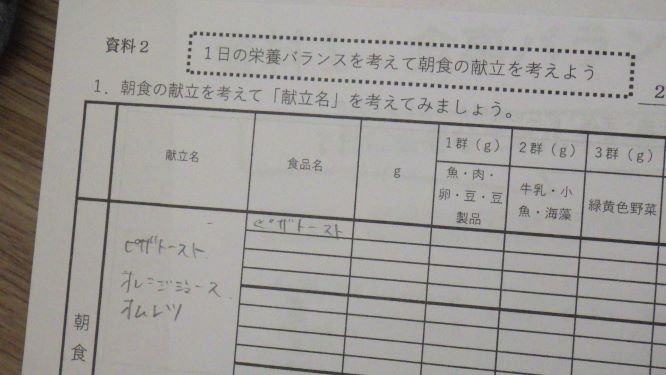 資料2
1日の栄養バランスを考えて朝食の献立を考えよう
2
1.朝食の献立を考えて「献立名」を考えてみましょう。
献立名
食品名
g
1群(g)
2群(g)
3群(g)
魚・肉・
卵・豆・豆
製品
牛乳・小
魚・海藻
緑黄色野菜
朝食
ピザトースト
ピザトースト
オレンジジュース
オムレツ